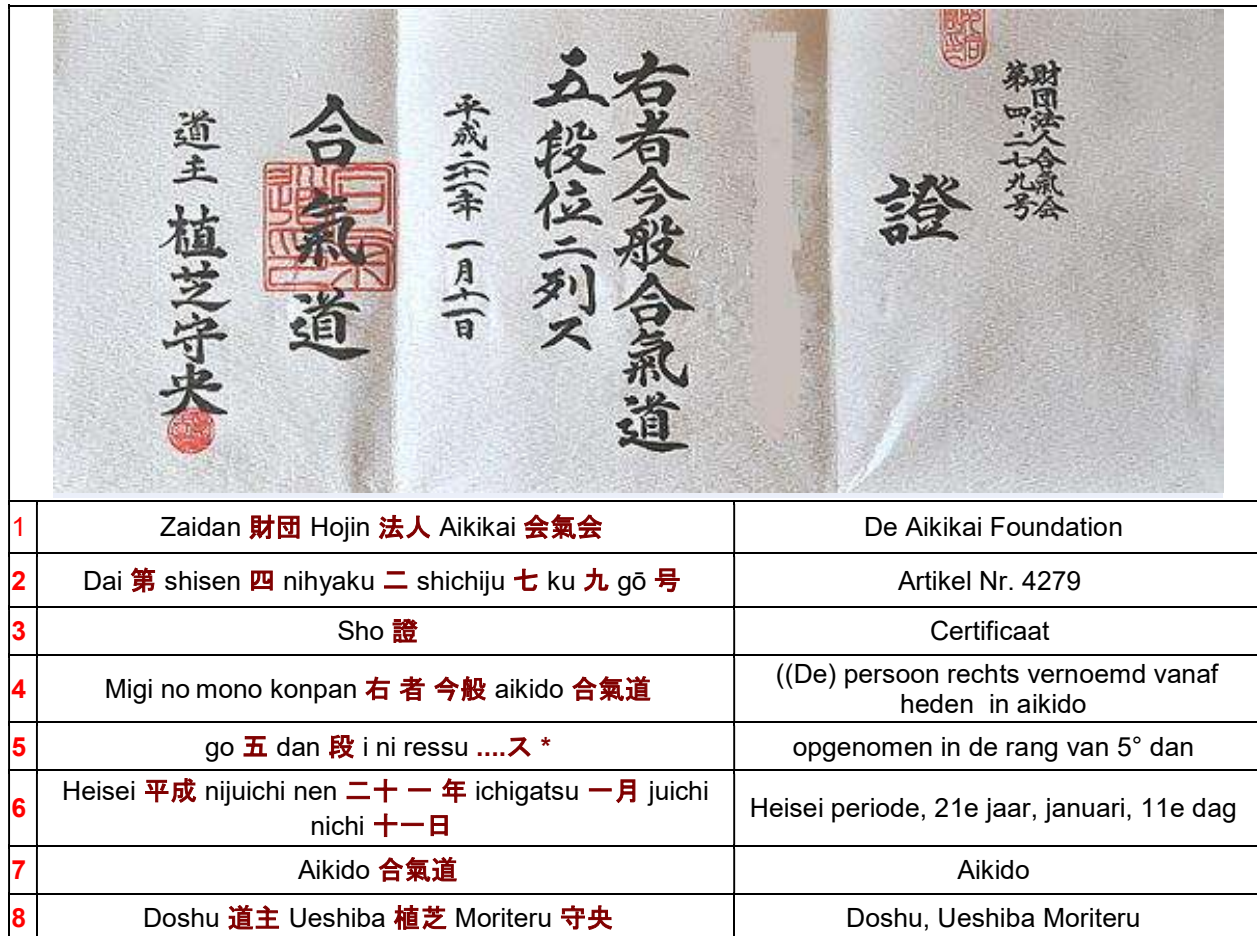 財団法人合氣会
第四二七九号
證
右者今般合氣道
五段位ニ列ス
平成二十一年 一月十一日
合氣道
道主 植芝守央
1 Zaidan 財団 Hojin 法人 Aikikai 会氣会 De Aikikai Foundation
2 Dai 第 shisen 四 nihyaku 二 shichiju 七 ku 九 gō 号 Artikel Nr. 4279
3 Sho 證 Certificaat
4 Migi no mono konpan 右 者 今般 aikido 合氣道 ((De) persoon rechts vernoemd vanaf
heden in aikido
5 go 五 dan 段 i ni ressu ....ス * opgenomen in de rang van 5° dan
6 Heisei 平成 nijuichi nen 二十 一 年 ichigatsu 一月 juichi
nichi 十一日 Heisei periode, 21e jaar, januari, 11e dag
7 Aikido 合氣道 Aikido
8 Doshu 道主 Ueshiba 植芝 Moriteru 守央 Doshu, Ueshiba Moriteru